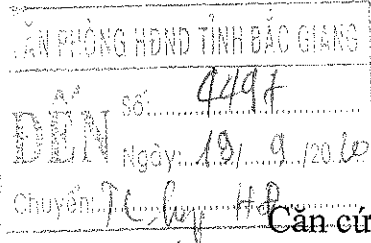 ĂN PHÒNG HĐND TỈNH BẮC GIANG
ĐẾN
Số:
Ngày: 19/ 9 /20.20
Chuyển: TC
Căn cứ